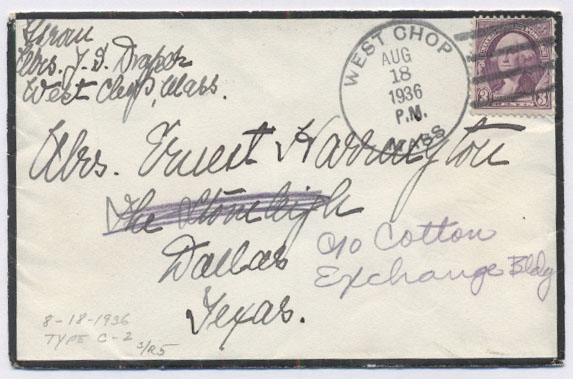 From
Mrs. T. S. Draper
West Chop, Mass.
WEST CHOP
AUG
18
1936
P.M.
MASS
3 3
Mrs. Ernest Harrington
The Stoneleigh
Dallas
Texas.
c/o Cotton
Exchange Bldg
8-18-1936
TYPE C-2
S/R5